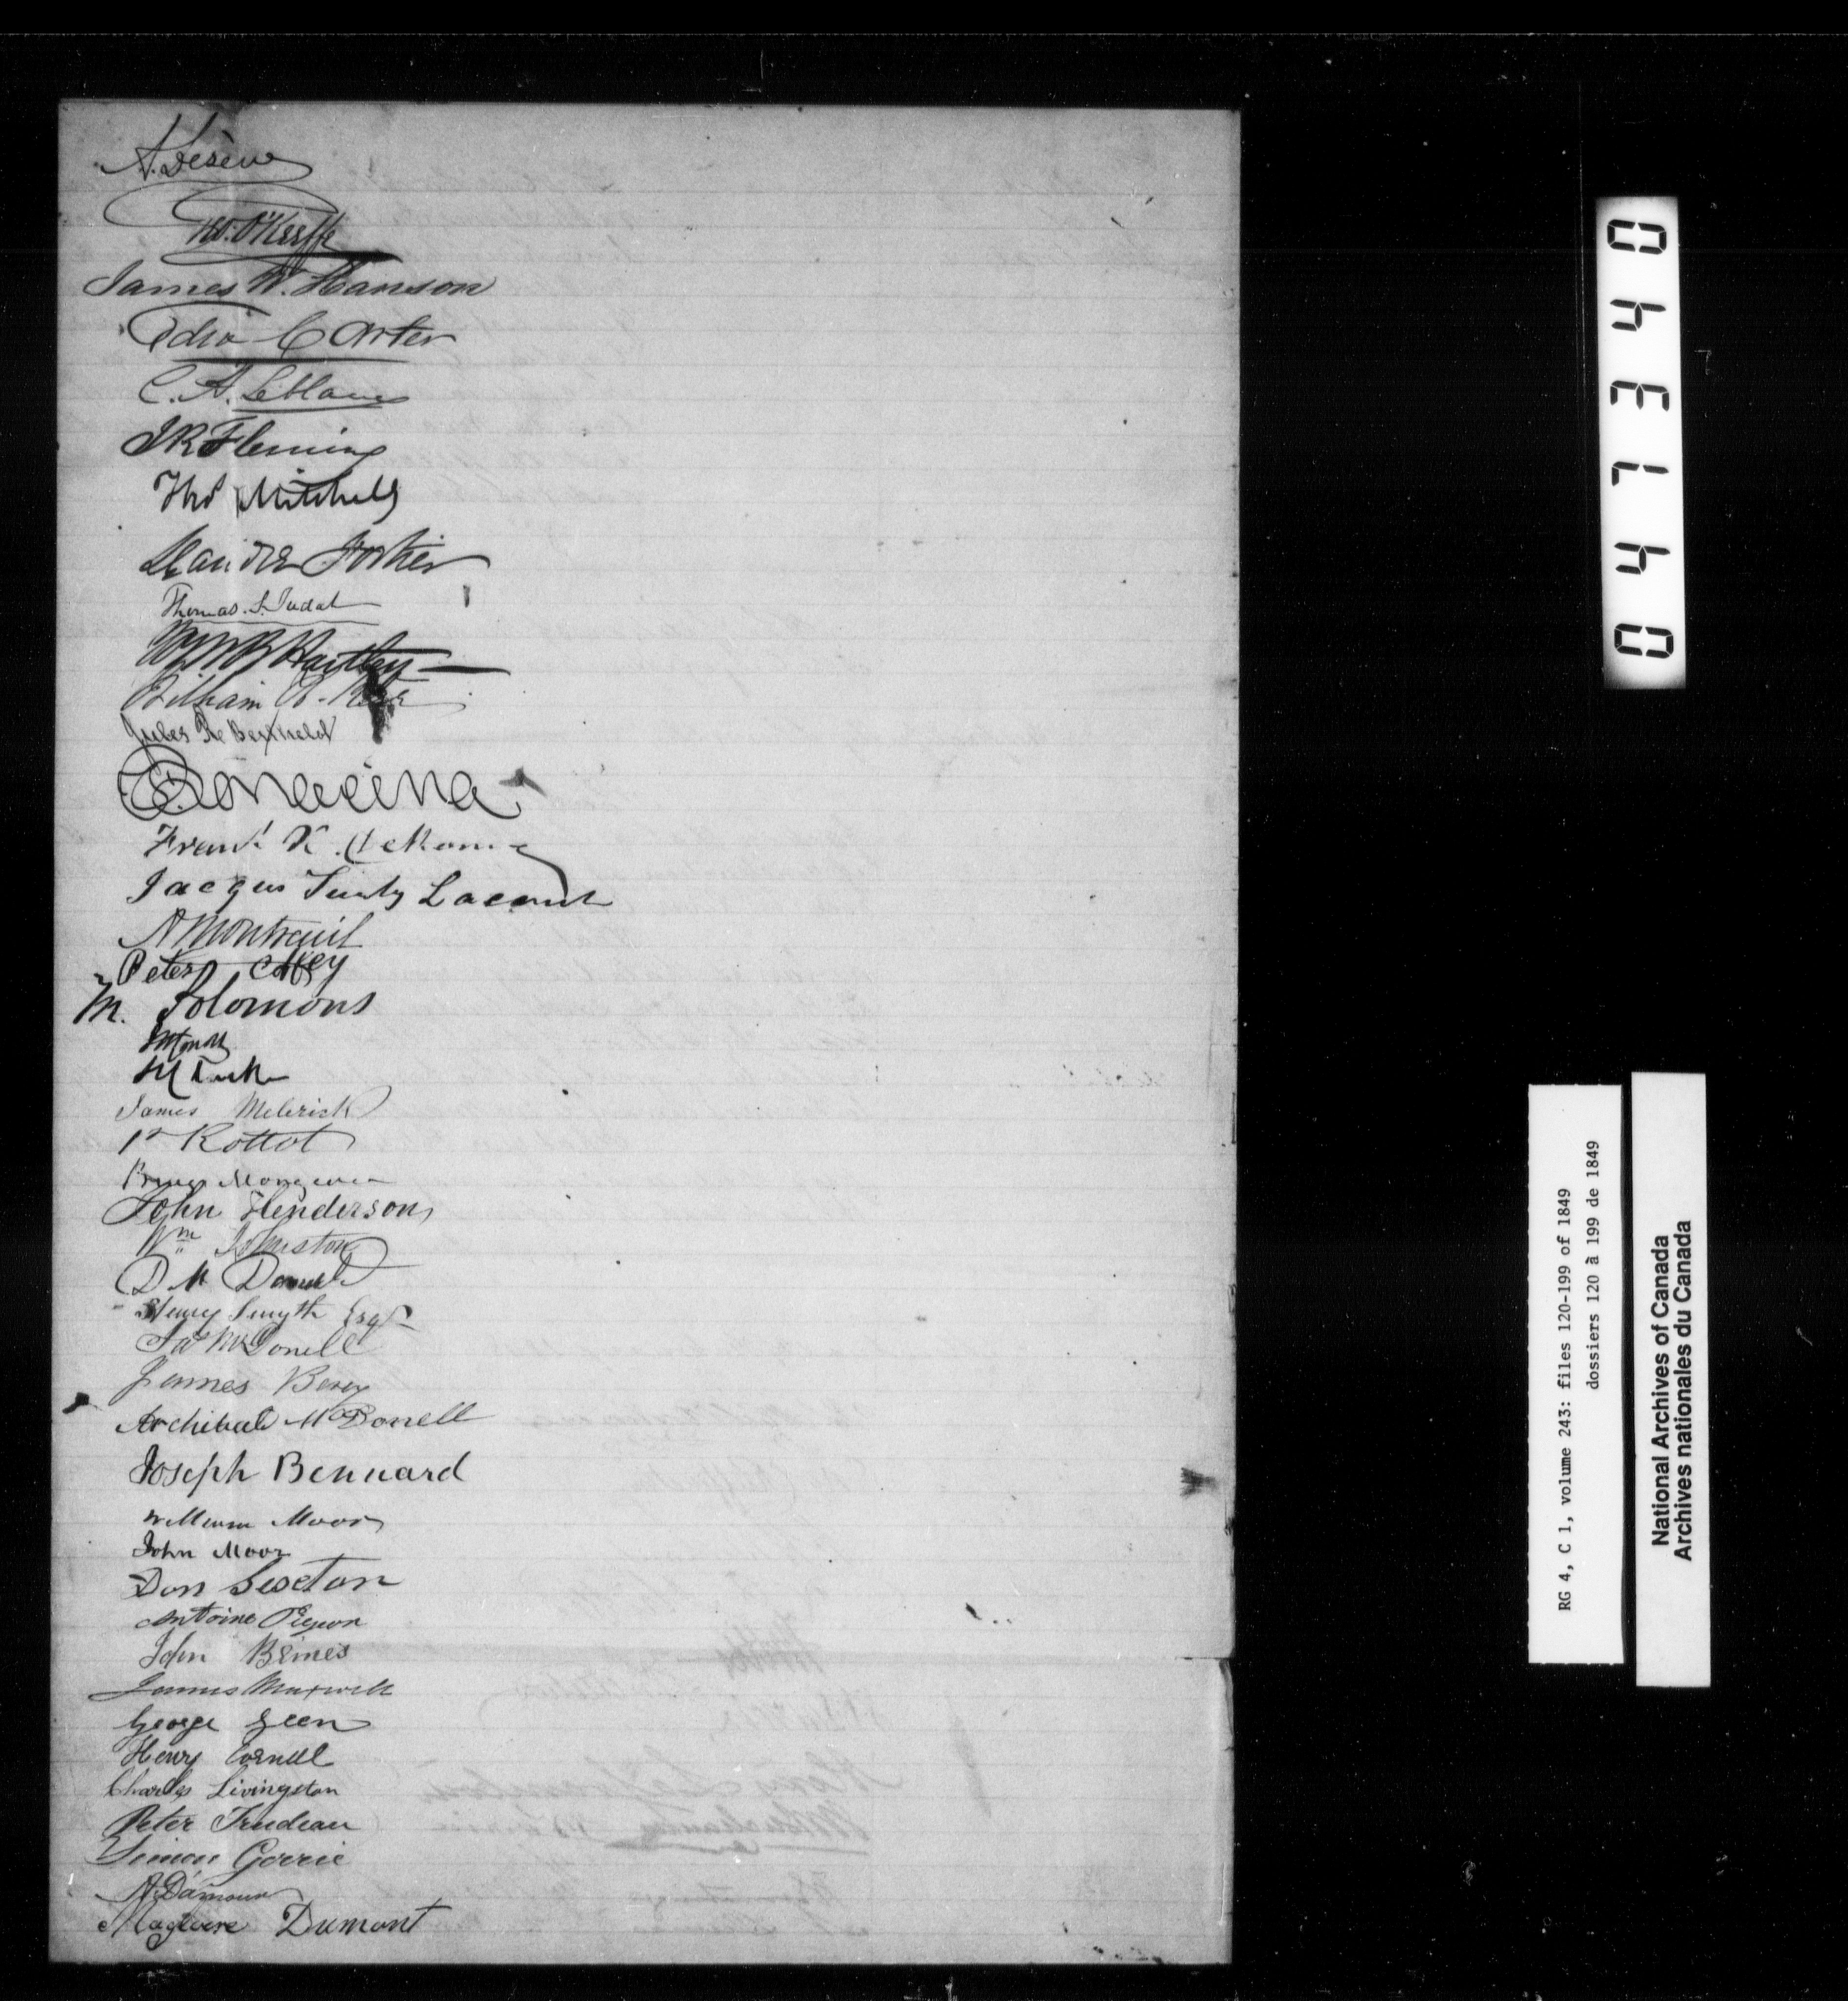 A. Desève
Tho. O'Keeffe
James W. Hanson
Edw Carter
C. A. Leblanc
J R Fleming
Thos Mitchell
Leandre Fortier
Thomas. S. Judah
Wm B Hartley
William
Jules R Berthelot
Donegana
Frank
Jacques
A Montreuil
Peter Coffey
M. Solomons
James
P Rottot
John Henderson
Wm Johnston
D M
Henry Smyth Esqr
Jas McDonell
James
Archibald McDonell
Joseph Bennard
William Moor
John Moor
Don Sexton
Antoine Pigeon
John Birnes
James Maxwell
George Geen
Henry Cornell
Charles Livingston
Peter Trudeau
Simon Gorrie
A. Damour
Magloire Dumont
044 1340
RG 4, C 1, volume 243: files 120-199 of 1849
dossiers 120 à 199 de 1849
National Archives of Canada
Archives nationales du Canada